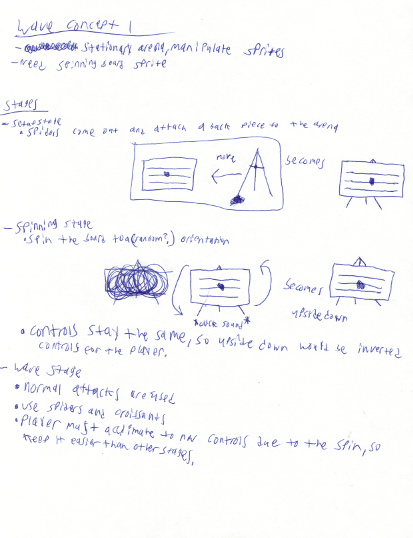 Wave concept 1
- stationary arena, manipulate sprites
- need spinning board sprite
States
- Setup state
• Spiders come out and attach a back piece to the arena
move
becomes
- Spinning stage
• Spin the board to a (random?) orientation
*whoosh sound*
becomes
upside down
• controls stay the same, so upside down would be inverted
controls for the player.
- Wave stage
• normal attacks are used
• use spiders and croissants
• Player must acclimate to new controls due to the spin, so
keep it easier than other stages.